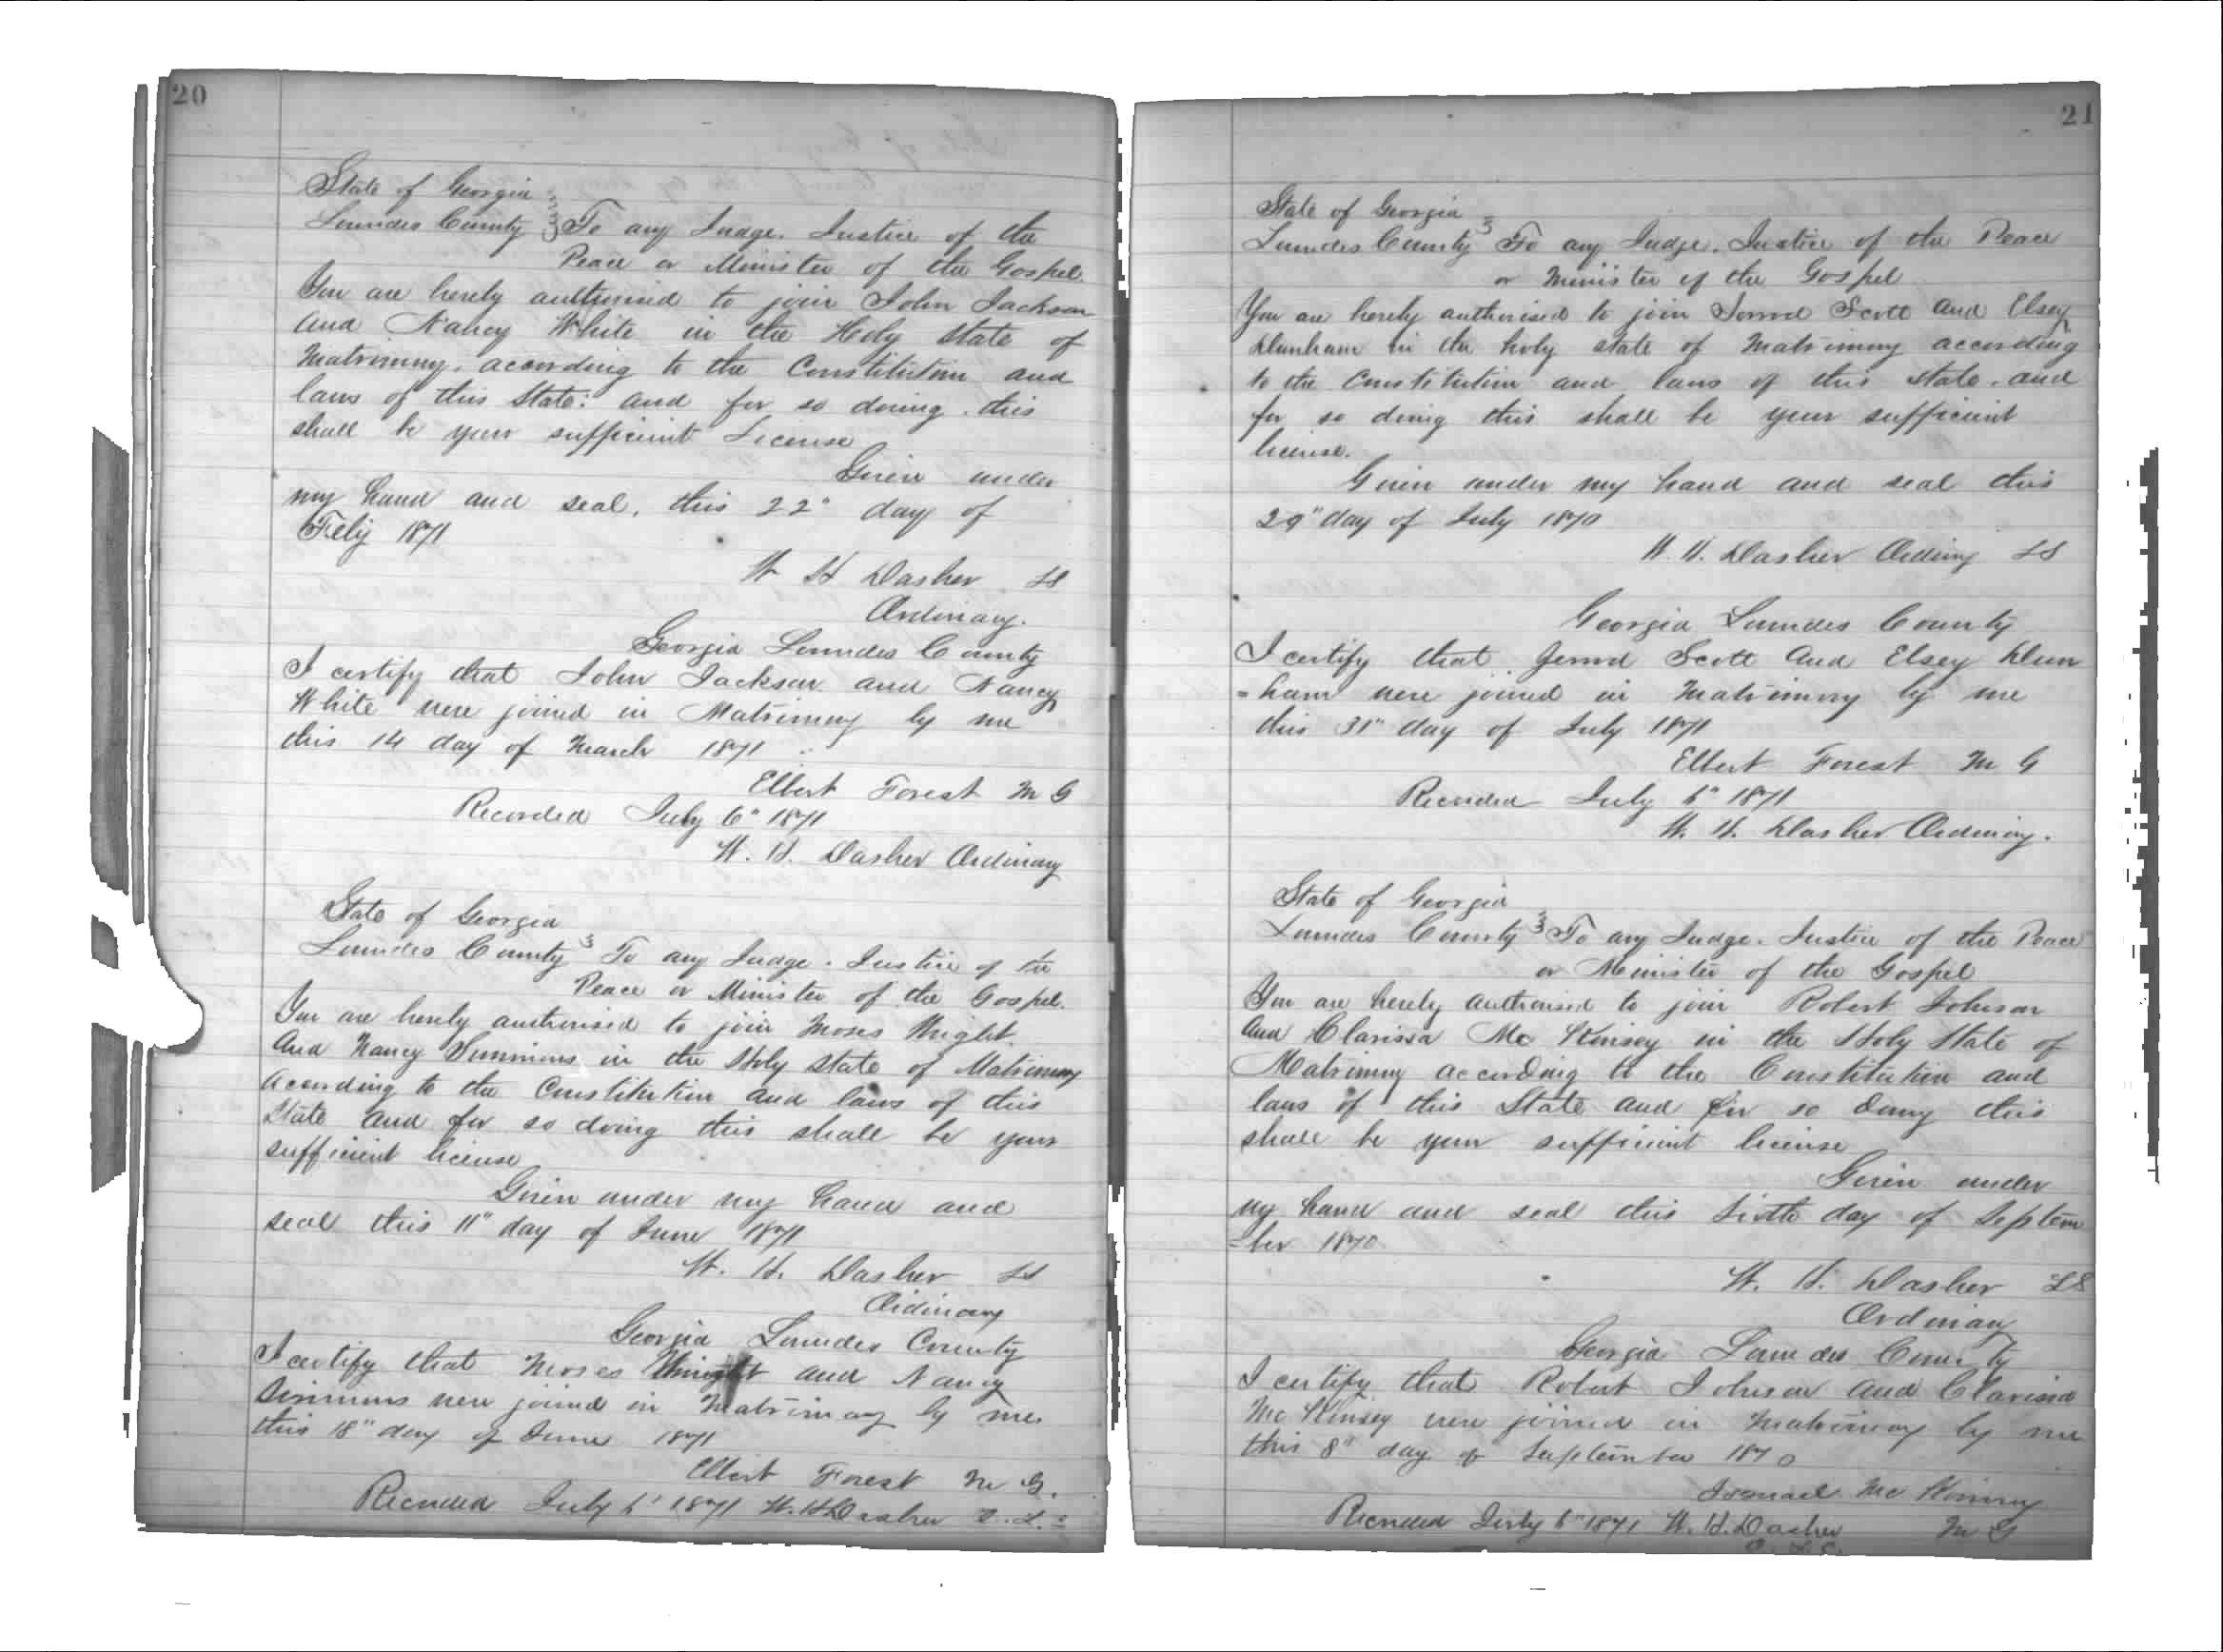 20
State of Georgia
Lowndes County } To any Judge. Justice of the
Peace or Minister of the Gospel.
You are hereby authorised to join John Jackson
and Nancy White in the Holy state of
Matrimony. according to the Constitution and
laws of this State: and for so doing. this
shall be your sufficient License
Given under
my hand and seal, this 22" day of
Feby 1871
W H Dasher LS
Ordinary.
Georgia Lowndes County
I certify that John Jackson and Nancy
White were joined in Matrimony by me
this 14 day of March 1871
Elbert Forest M G
Recorded July 6" 1871
W. H. Dasher Ordinary
State of Georgia
Lowndes County } To any Judge. Justice of the
Peace or Minister of the Gospel.
You are hereby authorised to join Moses
and Nancy Simmons in the Holy state of Matrimony
according to the Constitution and laws of this
State and for so doing this shall be your
sufficient license
Given under my hand and
seal this 11" day of June 1871
W. H. Dasher LS
Ordinary
Georgia Lowndes County
I certify that Moses and Nancy
Simmons were joined in Matrimony by me
this 18" day of June 1871
Elbert Forest M G.
Recorded July 6" 1871 W. H Dasher
21
State of Georgia
Lowndes County } To any Judge. Justice of the Peace
or Minister of the Gospel
You are hereby authorised to join Scott and Elsey
Dunham in the holy state of Matrimony according
to the Constitution and laws of this state. and
for so doing this shall be your sufficient
license.
Given under my hand and seal this
29" day of July 1870
W. H. Dasher Ordinary LS
Georgia Lowndes County
I certify that Scott and Elsey Dun
=ham were joined in Matrimony by me
this 31" day of July 1871
Elbert Forest M G
Recorded July 6" 1871
W. H. Dasher Ordinary.
State of Georgia
Lowndes County } To any Judge. Justice of the Peace
or Minister of the Gospel
You are hereby authorised to join Robert Johnson
and Clarissa Mc Kinsey in the Holy State of
Matrimony according to the Constitution and
laws of this State and for so doing this
shall be your sufficient license
Given under
my hand and seal this Sixth day of Septem
=ber 1870
W. H. Dasher LS
Ordinary
Georgia Lowndes County
I certify that Robert Johnson and Clarissa
Mc Kinsey were joined in Matrimony by me
this 8" day of September 1870
Mc
Recorded July 6" 1871 W. H. Dasher M G
O. L. C.